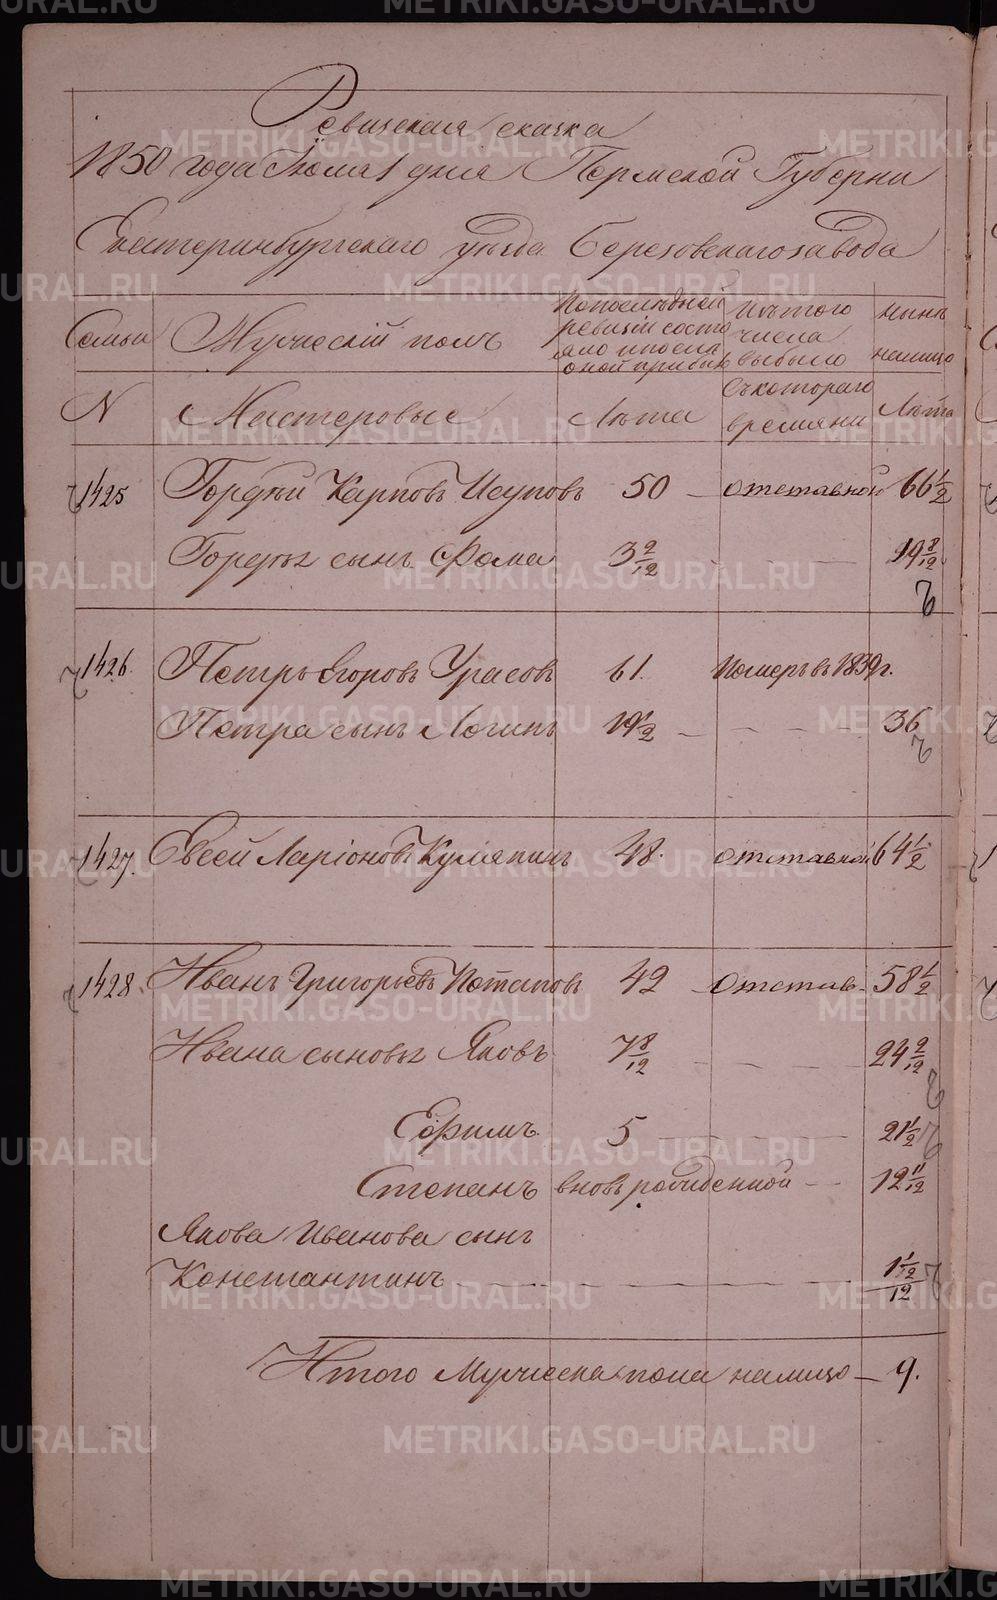 Ревизская сказка
1850 года Июля 1 дня Пермской Губерни
Екатеринбургскаго уезда Березовскаго завода
Семьи Мужеский полъ По последней ревизіи состояло и после оной прибыло Изъ того числа выбыло ныне налицо
N Мастеровые Лета Съ котораго времяни Лета
1425 Гордей Карповъ Исуповъ 50 - отставной 66 1/2
Гордея сынъ Фома 3 2/12 - - - 19 8/12
1426. Петръ Егоровъ Урасовъ 61. Померъ въ 1839 г.
Петра сынъ Логинъ 19 1/2 - - - 36
1427. Евсей Ларіоновъ Куляпинъ 48. отставной 64 1/2
1428. Иванъ Григорьевъ Потаповъ 42 - Отстав - 58 1/2
Ивана сыновья Яковъ 7 8/12 - - - 24 2/12
Ефимъ 5 - - - 21 1/2
Степанъ вновь рожденной - 12 11/12
Якова Иванова сынъ
Константинъ - - - 1 1/2/12
Итого Мужеска пола налицо - 9.
METRIKI.GASO-URAL.RU